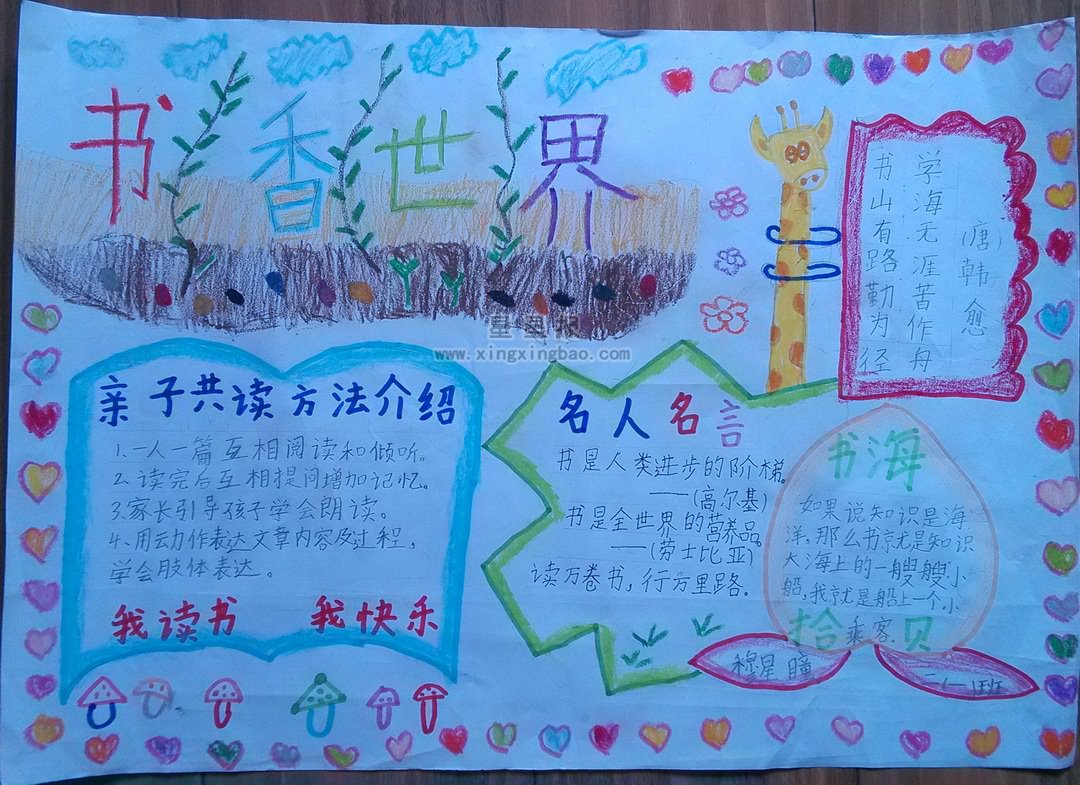 书香世界
(唐)韩愈
学海无涯苦作舟
书山有路勤为径
星星报
www.xingxingbao.com
亲子共读方法介绍
1.一人一篇互相阅读和倾听。
2.读完后互相提问增加记忆。
3.家长引导孩子学会朗读。
4.用动作表达文章内容及过程。
学会肢体表达。
我读书 我快乐
名人名言
书是人类进步的阶梯。
——(高尔基)
书是全世界的营养品。
——(劳士比亚)
读万卷书，行万里路。
书海
如果说知识是海
洋，那么书就是知识
大海上的一艘艘小
船，我就是船上一个小
乘客
拾贝
穆星瞳
二、一班